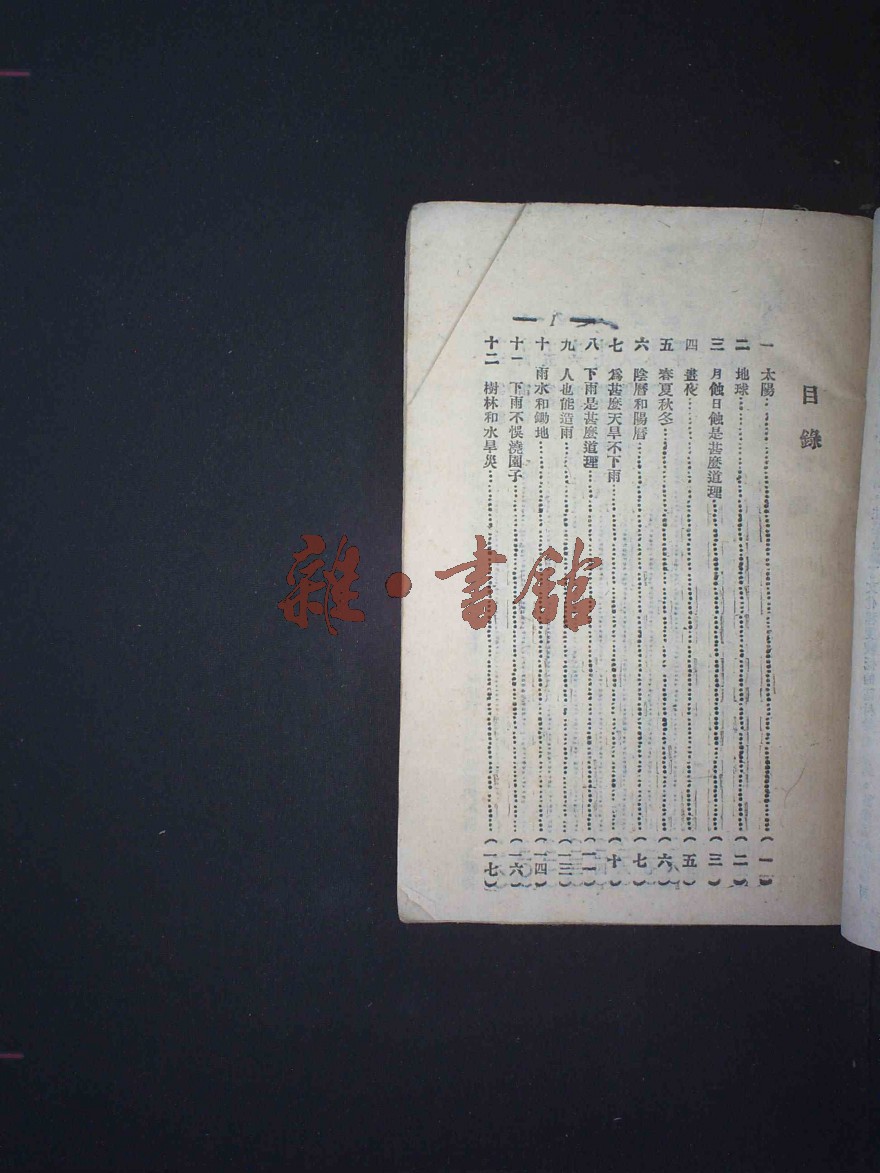 目錄
一 太陽……(一)
二 地球……(二)
三 月蝕日蝕是甚麼道理……(三)
四 晝夜……(五)
五 春夏秋冬……(六)
六 陰曆和陽曆……(七)
七 爲甚麼天旱不下雨……(十)
八 下雨是甚麼道理……(一一)
九 人也能造雨……(一三)
十 雨水和鋤地……(一四)
十一 下雨不悞澆園子……(一六)
十二 樹林和水旱災……(一七)
— 1 —
雜·書館